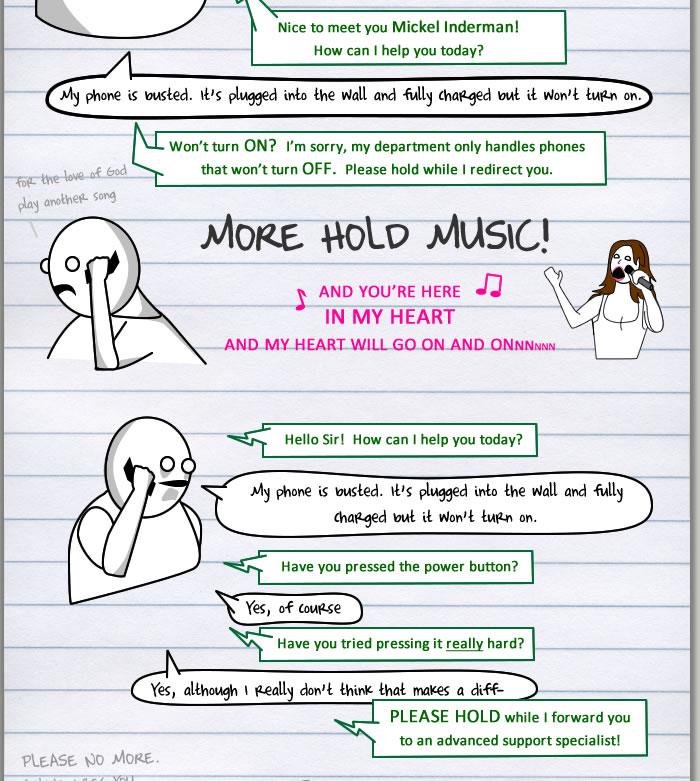 Nice to meet you Mickel Inderman!
How can I help you today?
My phone is busted. It's plugged into the wall and fully charged but it won't turn on.
Won't turn ON? I'm sorry, my department only handles phones
that won't turn OFF. Please hold while I redirect you.
for the love of God
play another song
MORE HOLD MUSIC!
AND YOU'RE HERE
IN MY HEART
AND MY HEART WILL GO ON AND ONNNNNN
Hello Sir! How can I help you today?
My phone is busted. It's plugged into the wall and fully
charged but it won't turn on.
Have you pressed the power button?
Yes, of course
Have you tried pressing it really hard?
Yes, although I really don't think that makes a diff-
PLEASE HOLD while I forward you
to an advanced support specialist!
PLEASE NO MORE.